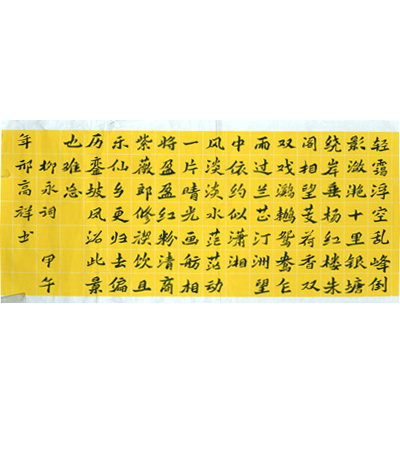 轻霭浮空乱峰倒
影潋滟十里银塘
绕岸垂杨红楼朱
阁相望芰荷香双
双戏鸂鶒鸳鸯乍
雨过兰芷汀洲望
中依约似潇湘
风淡淡水茫茫动
一片晴光画舫相
将盈盈红粉清商
紫薇郎修禊饮且
乐仙乡更归去偏
历銮坡凤沼此景
也难忘
柳永词 甲午
年 祁高祥书